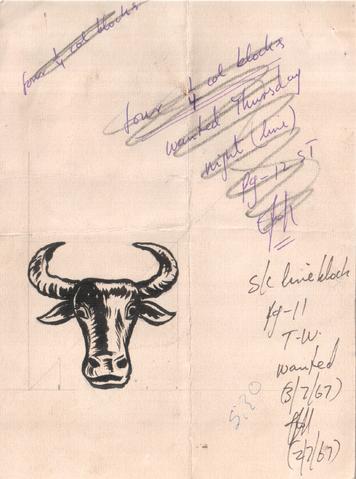 four 4 col blocks
four 4 col blocks
wanted Thursday
night (line)
Pg-12 ST
S/c line block
Pg-11
T.W.
wanted
(3/7/67)
(2/7/67)
5:30